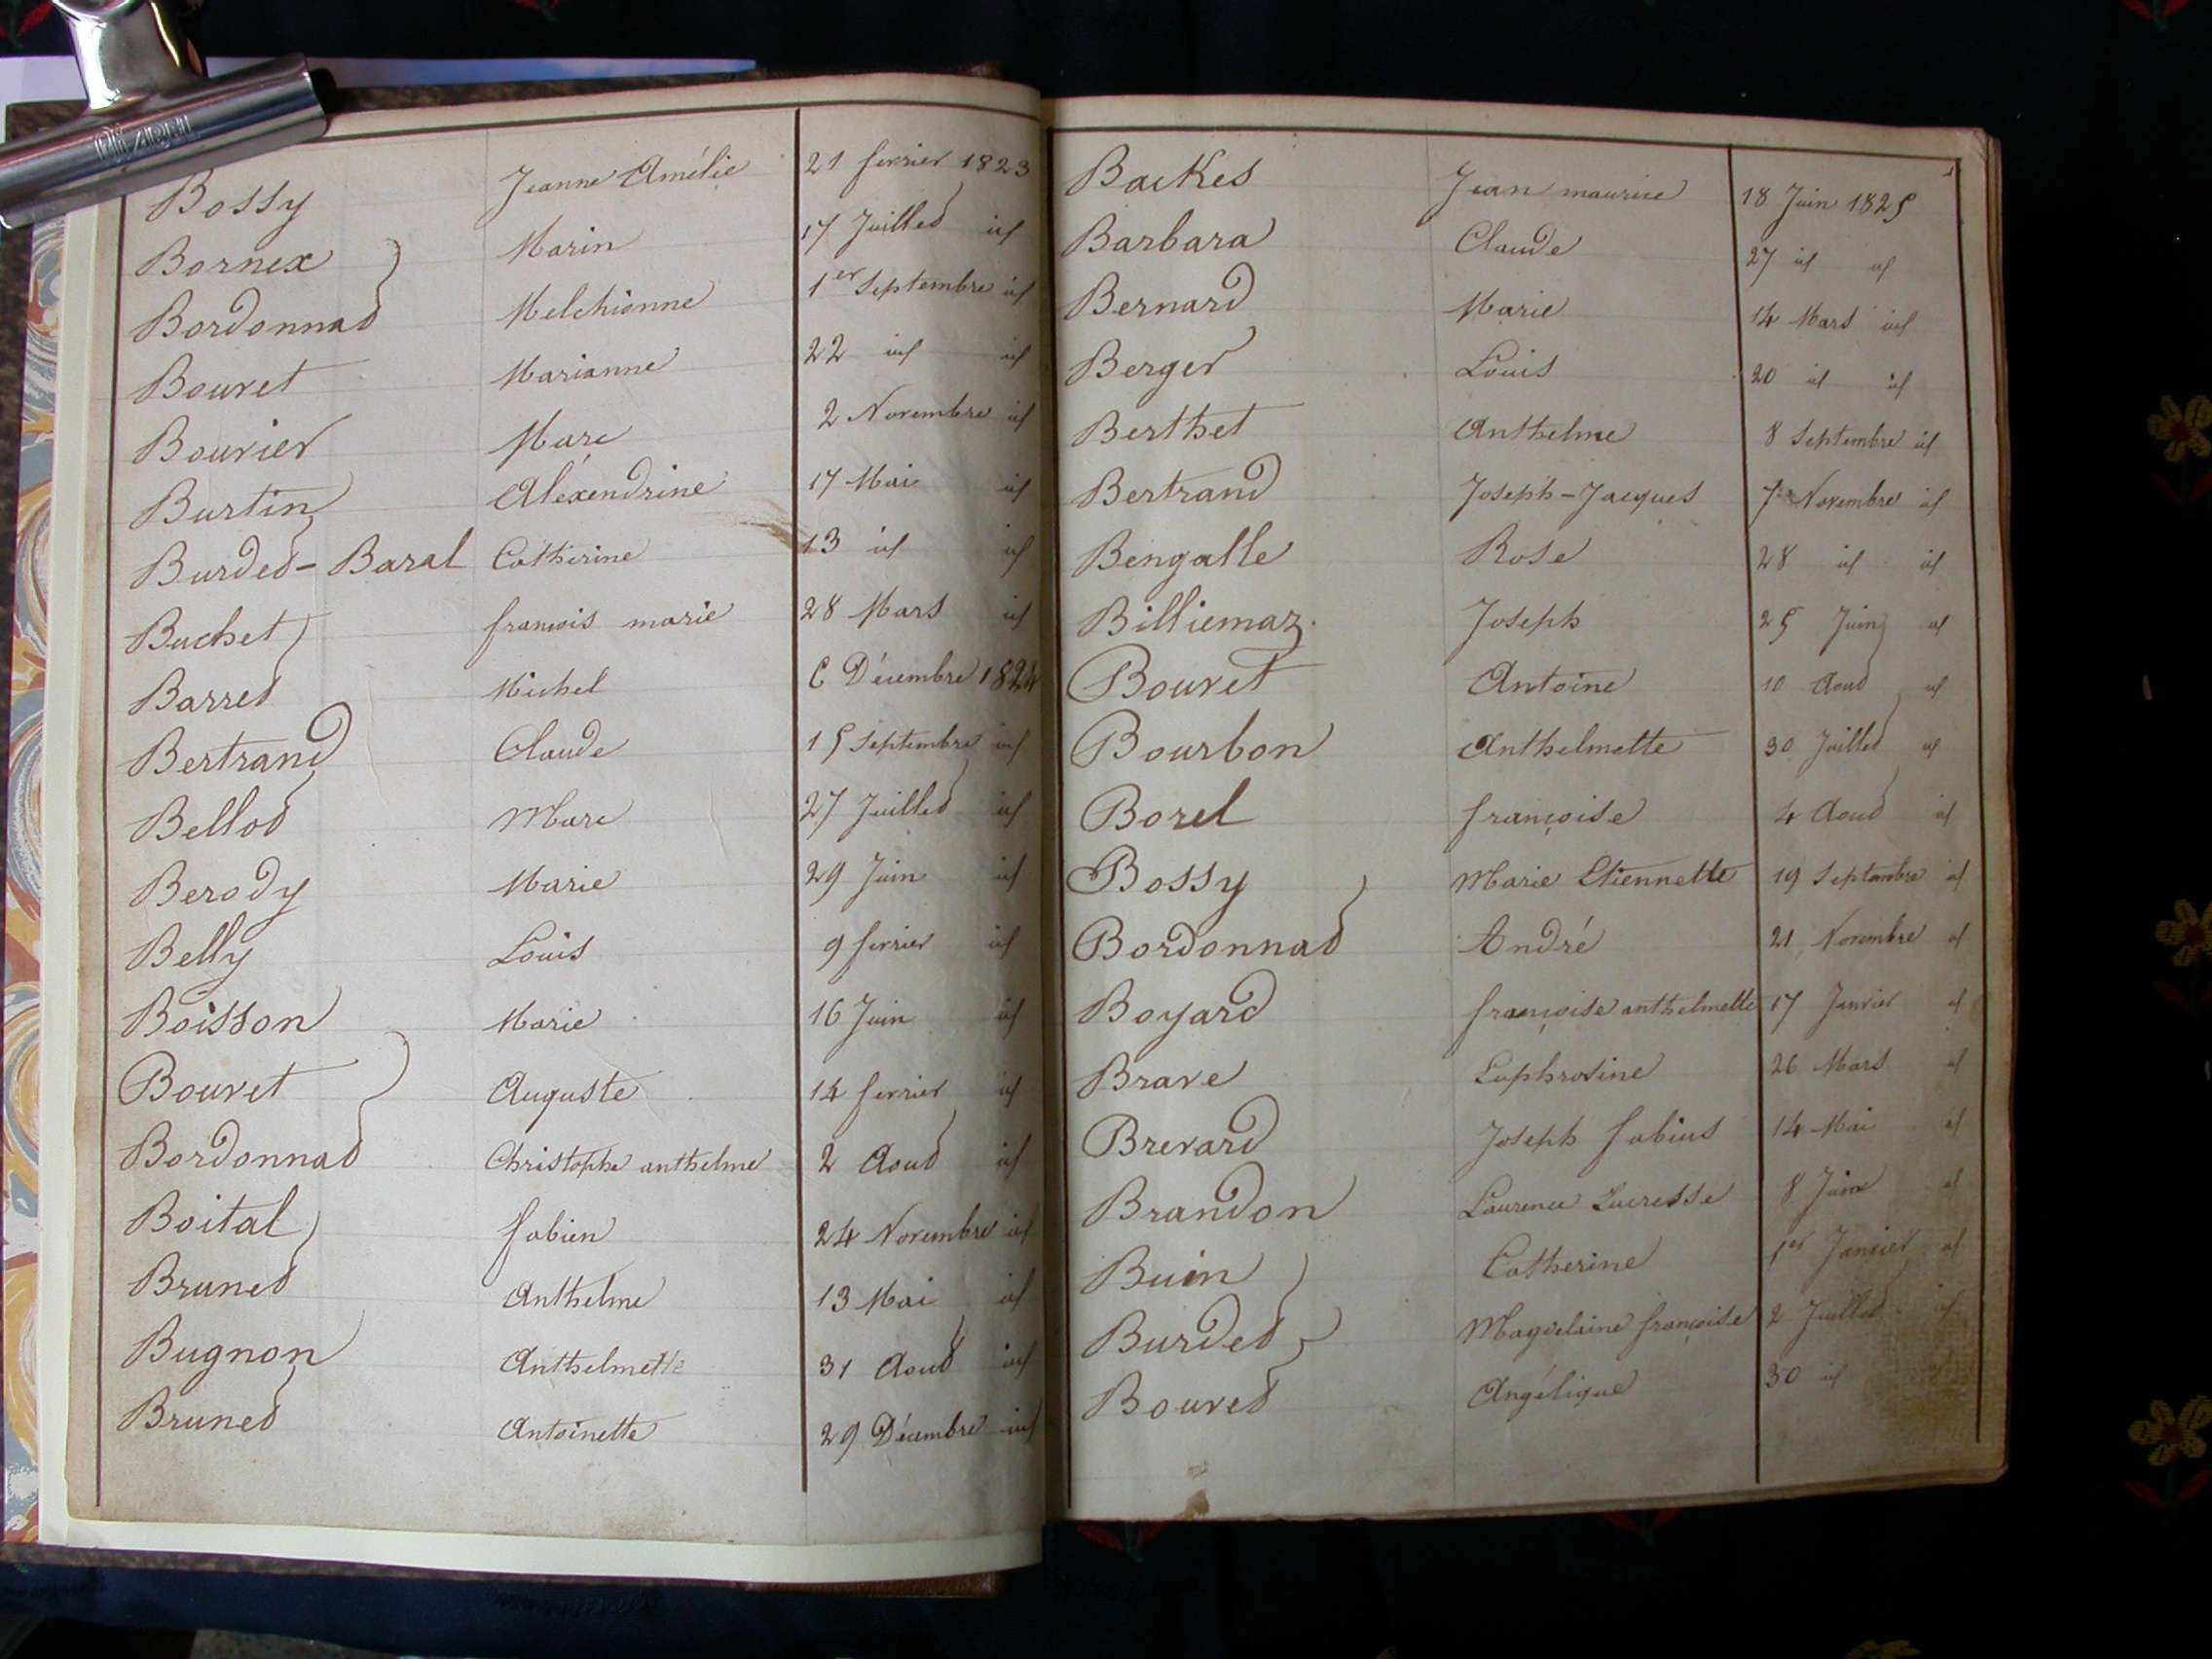 Bossy Jeanne Amélie 21 fevrier 1823
Bornex Marin 17 Juillet id
Bordonnat Melchionne 1er Septembre id
Bouvet Marianne 22 id id
Bouvier Marc 2 Novembre id
Burtin Aléxendrine 17 Mai id
Burdet-Baral Catherine 13 id id
Buchet françois marie 28 Mars id
Barret Michel 6 Décembre 1824
Bertrand Claude 15 Septembre id
Bellot Marc 27 Juillet id
Berody Marie 29 Juin id
Belly Louis 9 fevrier id
Boisson Marie 16 Juin id
Bouvet Auguste 14 fevrier id
Bordonnat Christophe anthelme 2 Aout id
Boital fabien 24 Novembre id
Brunet Anthelme 13 Mai id
Bugnon Anthelmette 31 Aout id
Brunet Antoinette 29 Décembre id
Backes Jean maurice 18 Juin 1825
Barbara Claude 27 id id
Bernard Marie 14 Mars id
Berger Louis 20 id id
Berthet Anthelme 8 Septembre id
Bertrand Joseph-Jacques 7 Novembre id
Bengalle Rose 28 id id
Billiemaz Joseph 25 Juin id
Bouvet Antoine 10 Aout id
Bourbon Anthelmette 30 Juillet id
Borel françoise 4 Aout id
Bossy Marie Etiennette 19 Septembre id
Bordonnat André 21 Novembre id
Boyard françoise anthelmette 17 Janvier id
Brave Euphrosine 26 Mars id
Brevard Joseph fabius 14 Mai id
Brandon Laurence Lucresse 8 Juin id
Buin Catherine 1er Janvier id
Burdet Magdelaine françoise 2 Juillet id
Bouvet Angélique 30 id